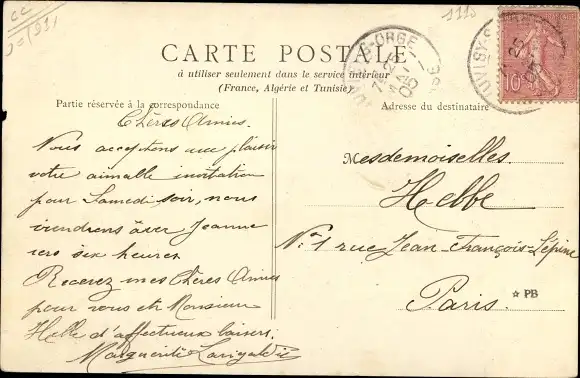 CC
1110
CARTE POSTALE
à utiliser seulement dans le service intérieur
(France, Algérie et Tunisie)
Partie réservée à la correspondance
Adresse du destinataire
JUVISY-S-ORGE
7 25
05
10
Chères Amies.
Nous acceptons avec plaisir
votre aimable invitation
pour Samedi soir, nous
viendrons avec Jeanne
vers six heures
Recevez mes Chères Amies
pour vous et Monsieur
Helle d'affectueux baisers.
Marguerite
Mesdemoiselles.
Helbe
N° 1 rue Jean-François-Lépine
Paris.
☆ PB